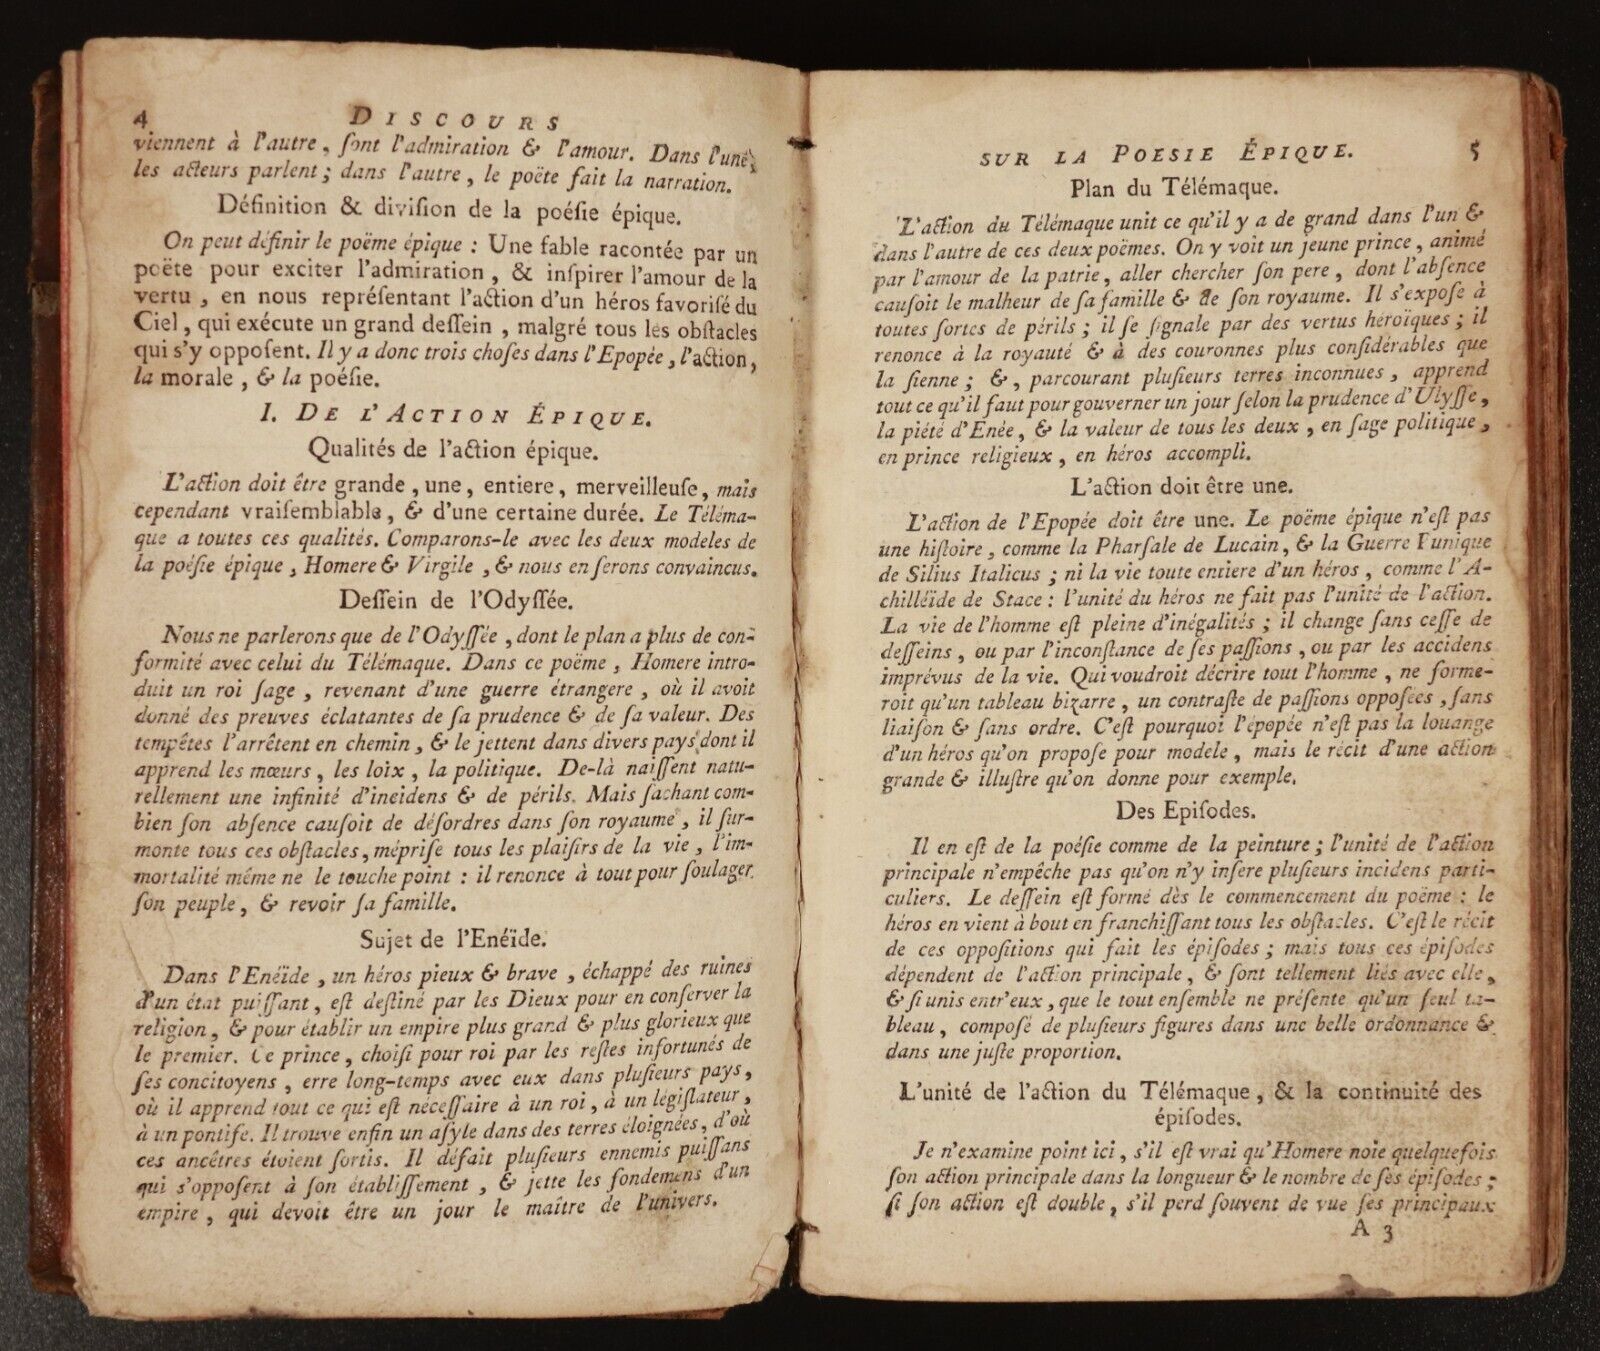 4 DISCOURS
viennent à l'autre, ſont l'admiration & l'amour. Dans l'une,
les acteurs parlent ; dans l'autre, le poëte fait la narration.
Définition & diviſion de la poéſie épique.
On peut définir le poëme épique : Une fable racontée par un
poëte pour exciter l'admiration, & inſpirer l'amour de la
vertu, en nous repréſentant l'action d'un héros favoriſé du
Ciel, qui exécute un grand deſſein, malgré tous les obſtacles
qui s'y oppoſent. Il y a donc trois choſes dans l'Epopée, l'action,
la morale, & la poéſie.
I. DE L'ACTION ÉPIQUE.
Qualités de l'action épique.
L'action doit être grande, une, entiere, merveilleuſe, mais
cependant vraiſemblable, & d'une certaine durée. Le Téléma-
que a toutes ces qualités. Comparons-le avec les deux modeles de
la poéſie épique, Homere & Virgile, & nous en ſerons convaincus.
Deſſein de l'Odyſſée.
Nous ne parlerons que de l'Odyſſée, dont le plan a plus de con-
formité avec celui du Télémaque. Dans ce poëme, Homere intro-
duit un roi ſage, revenant d'une guerre étrangere, où il avoit
donné des preuves éclatantes de ſa prudence & de ſa valeur. Des
tempêtes l'arrêtent en chemin, & le jettent dans divers pays dont il
apprend les mœurs, les loix, la politique. De-là naiſſent natu-
rellement une infinité d'incidens & de périls. Mais ſachant com-
bien ſon abſence cauſoit de déſordres dans ſon royaume, il ſur-
monte tous ces obſtacles, mépriſe tous les plaiſirs de la vie, l'im-
mortalité même ne le touche point : il renonce à tout pour ſoulager
ſon peuple, & revoir ſa famille.
Sujet de l'Enéïde.
Dans l'Enéïde, un héros pieux & brave, échappé des ruines
d'un état puiſſant, eſt deſtiné par les Dieux pour en conſerver la
religion, & pour établir un empire plus grand & plus glorieux que
le premier. Ce prince, choiſi pour roi par les reſtes infortunés de
ſes concitoyens, erre long-temps avec eux dans pluſieurs pays,
où il apprend tout ce qui eſt néceſſaire à un roi, à un légiſlateur,
à un pontife. Il trouve enfin un aſyle dans des terres éloignées, d'où
ces ancêtres étoient ſortis. Il défait pluſieurs ennemis puiſſans
qui s'oppoſent à ſon établiſſement, & jette les fondemens d'un
empire, qui devoit être un jour le maître de l'univers.
SUR LA POESIE ÉPIQUE. 5
Plan du Télémaque.
L'action du Télémaque unit ce qu'il y a de grand dans l'un &
dans l'autre de ces deux poëmes. On y voit un jeune prince, animé
par l'amour de la patrie, aller chercher ſon pere, dont l'abſence
cauſoit le malheur de ſa famille & de ſon royaume. Il s'expoſe à
toutes ſortes de périls ; il ſe ſignale par des vertus héroïques ; il
renonce à la royauté & à des couronnes plus conſidérables que
la ſienne ; &, parcourant pluſieurs terres inconnues, apprend
tout ce qu'il faut pour gouverner un jour ſelon la prudence d'Ulyſſe,
la piété d'Enée, & la valeur de tous les deux, en ſage politique,
en prince religieux, en héros accompli.
L'action doit être une.
L'action de l'Epopée doit être une. Le poëme épique n'eſt pas
une hiſtoire, comme la Pharſale de Lucain, & la Guerre Punique
de Silius Italicus ; ni la vie toute entiere d'un héros, comme l'A-
chilléïde de Stace : l'unité du héros ne fait pas l'unité de l'action.
La vie de l'homme eſt pleine d'inégalités ; il change ſans ceſſe de
deſſeins, ou par l'inconſtance de ſes paſſions, ou par les accidens
imprévus de la vie. Qui voudroit décrire tout l'homme, ne forme-
roit qu'un tableau bizarre, un contraſte de paſſions oppoſées, ſans
liaiſon & ſans ordre. C'eſt pourquoi l'épopée n'eſt pas la louange
d'un héros qu'on propoſe pour modele, mais le récit d'une action
grande & illuſtre qu'on donne pour exemple.
Des Epiſodes.
Il en eſt de la poéſie comme de la peinture ; l'unité de l'action
principale n'empêche pas qu'on n'y inſere pluſieurs incidens parti-
culiers. Le deſſein eſt formé dès le commencement du poëme : le
héros en vient à bout en franchiſſant tous les obſtacles. C'eſt le récit
de ces oppoſitions qui fait les épiſodes ; mais tous ces épiſodes
dépendent de l'action principale, & ſont tellement liés avec elle,
& ſi unis entr'eux, que le tout enſemble ne préſente qu'un ſeul ta-
bleau, compoſé de pluſieurs figures dans une belle ordonnance &
dans une juſte proportion.
L'unité de l'action du Télémaque, & la continuité des
épiſodes.
Je n'examine point ici, s'il eſt vrai qu'Homere noie quelquefois
ſon action principale dans la longueur & le nombre de ſes épiſodes ;
ſi ſon action eſt double, s'il perd ſouvent de vue ſes principaux
A 3